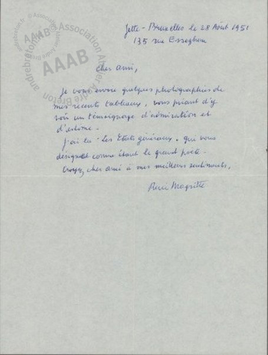 Jette-Bruxelles le 28 Août 1951
135 rue Esseghem
Cher ami,
Je vous envoie quelques photographies de
mes récents tableaux, vous priant d'y
voir un témoignage d'admiration et
d'estime.
J'ai lu "Les Etats généraux" que vous
désignent comme étant le grand poète.
Croyez, cher ami à mes meilleurs sentiments,
René Magritte
AAAB